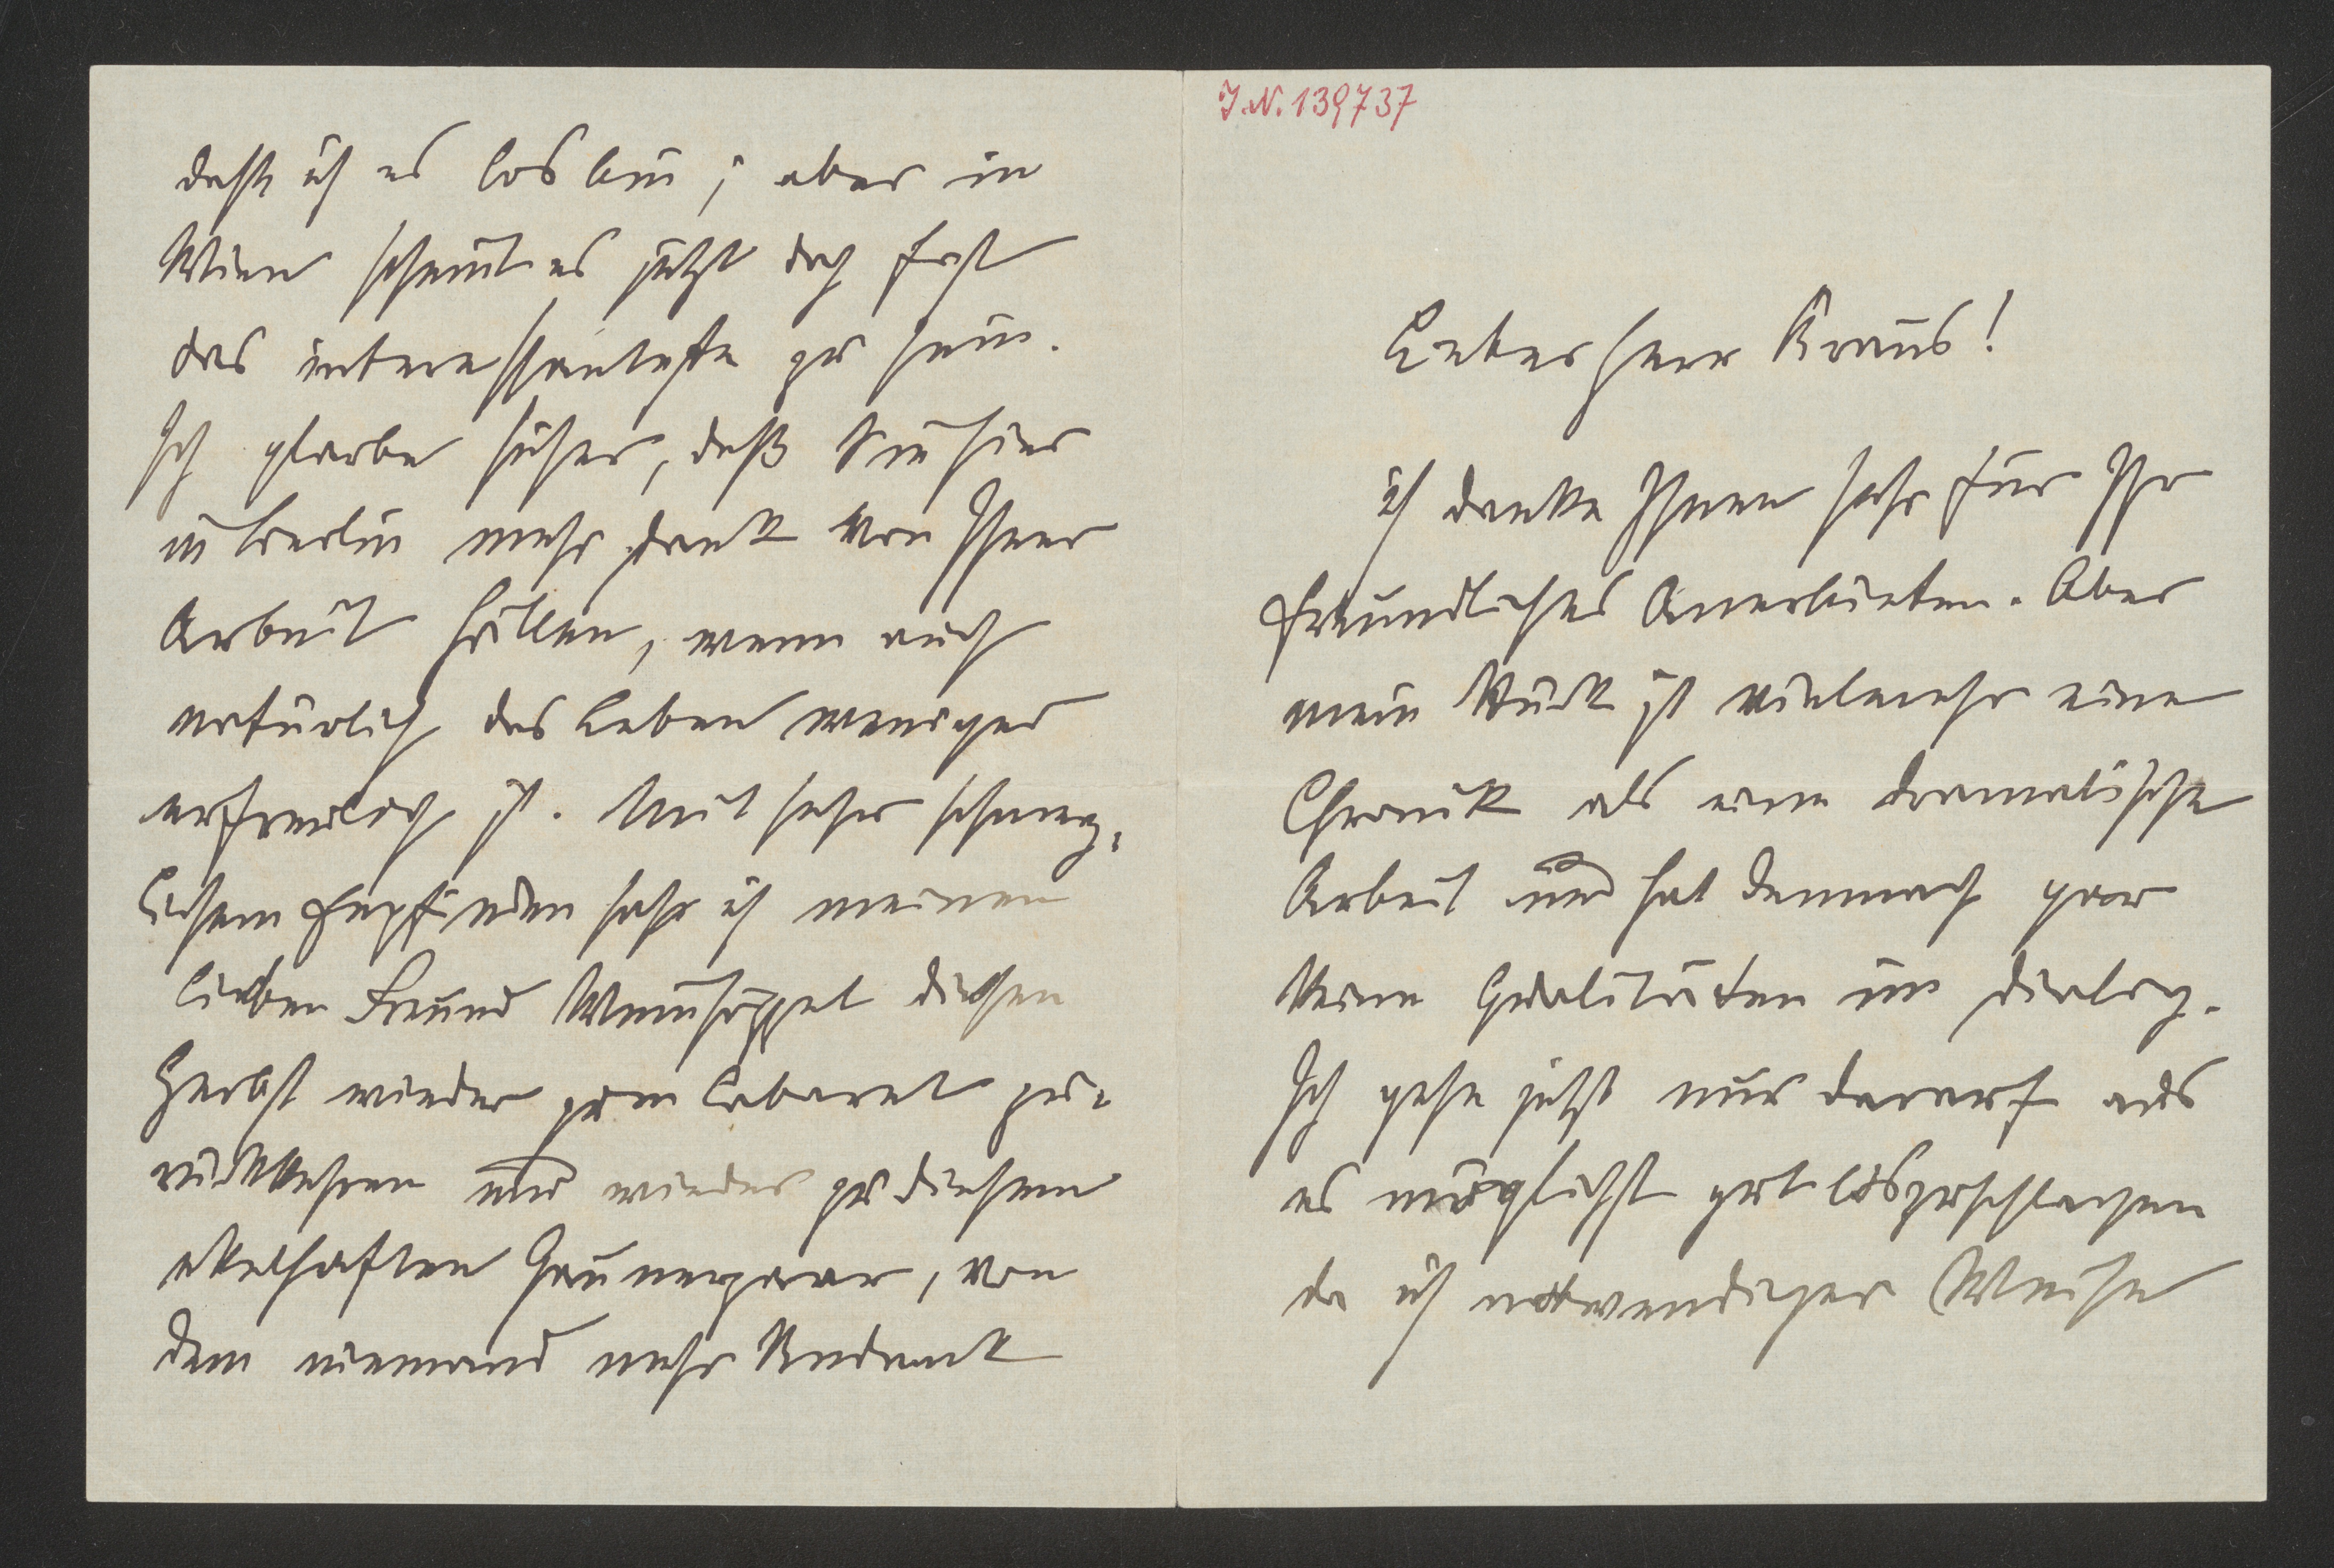 dass ich es los bin; aber in
Wien scheint es jetzt doch fast
das interessanteste zu sein.
Ich glaube sicher, daß Sie hier
in Berlin mehr Dank von Ihrer
Arbeit hätten, wenn auch
natürlich das Leben weniger
erfreulich ist. Mit sehr schmerz-
lichem Empfinden sehe ich meinen
lieben Freund Weinhöppel diesen
Herbst wieder zum Cabaret zu-
rückkehren und wieder zu diesem
ekelhaften Gaunerpaar, von
dem niemand mehr Undank
I.N. 139737
Lieber Herr Kraus!
ich danke Ihnen sehr für Ihr
freundliches Anerbieten. Aber
mein Stück ist vielmehr eine
Chronik als eine dramatische
Arbeit und hat demnach gar
keine Qualitäten im Dialog.
Ich gehe jetzt nur darauf aus
es möglichst gut loszuschlagen
da ich notwendiger Weise